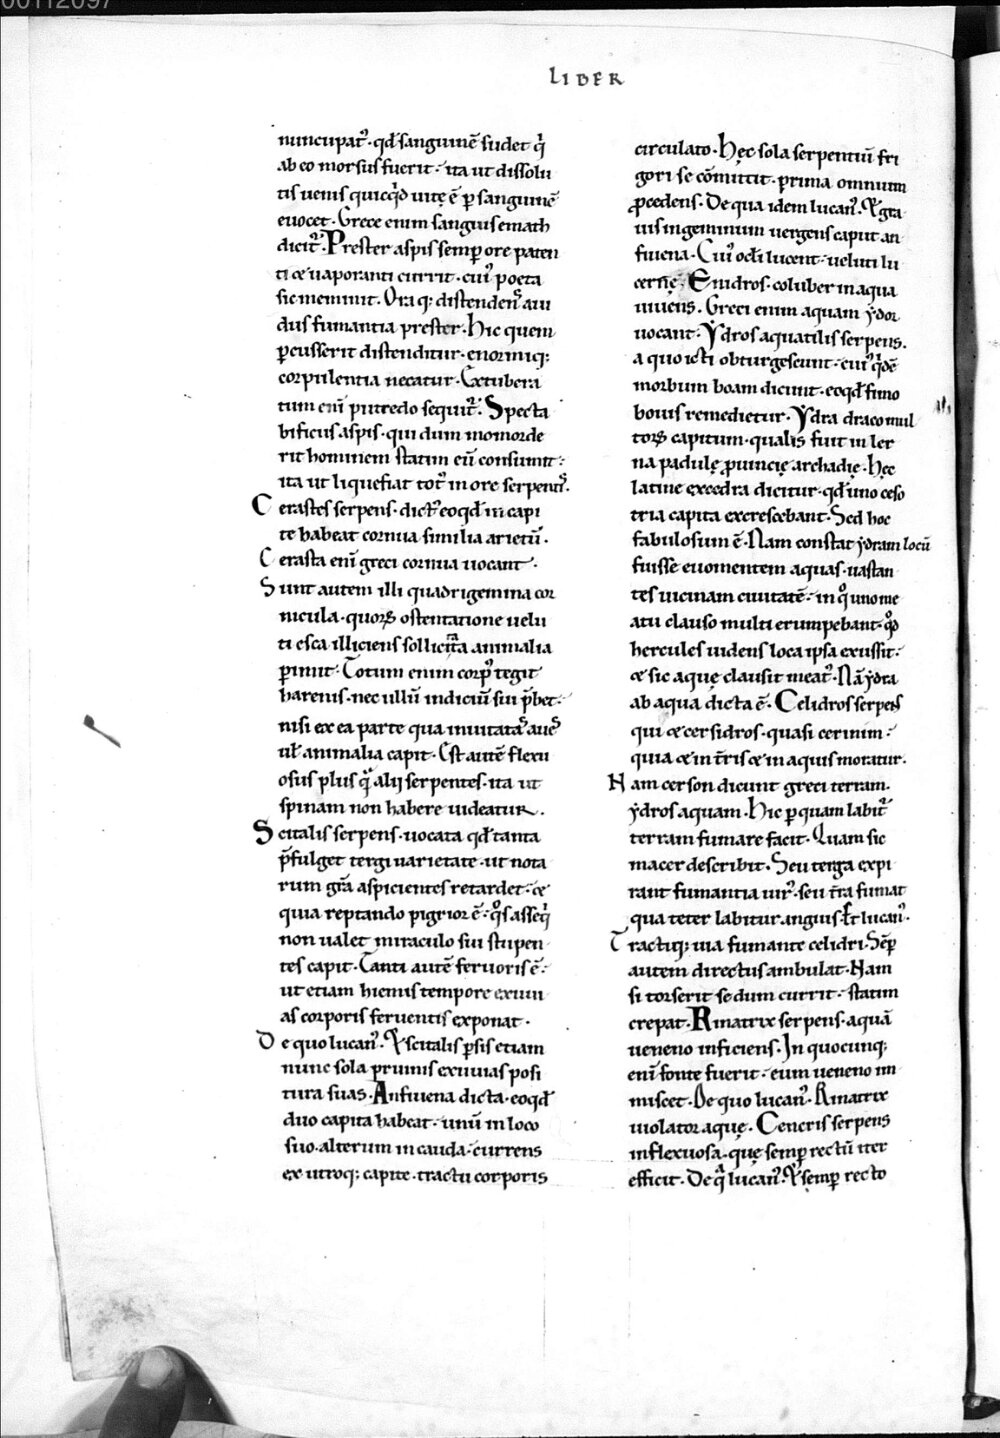 00112097
LIBER
nuncupat᷑· qđ sanguinē sudet q̇
ab eo morsus fuerit· ita ut dissolu
tis uenis quicq̇d uitę ē ꝑ sanguinē
euocet· Grece enim sanguis emath
dicit᷑· Prester aspis semꝑ ore paten
ti & uaporanti currit· cui᷒ poeta
sic meminit· Ora q; distenden᷒ aui
dus fumantia prester· Hic quem
ꝑcusserit distenditur· enormiq;
corpulentia necatur· Extubera
tum eni᷒ putredo sequit᷑· Specta
bificus aspis· qui dum momorde
rit hominem statim eū consumit·
ita ut liquefiat tot᷒ in ore serpent᷒·
Cerastes serpens· dict᷒ eoqđ in capi
te habeat cornua similia arietū·
Cerasta enī greci cornua uocant·
Sunt autem illi quadrigemina cor
nicula· quoꝝ ostentatione uelu
ti esca illiciens sollicita animalia
ꝑimit· Totum enim corp᷒ tegit
harenis· nec ullū indiciū sui p̄bet·
nisi ex ea parte qua inuitatas aues
uł animalia capit· Est autē flexu
osus plus q̄ alii serpentes· ita ut
spinam non habere uideatur·
Scitalis serpens· uocata qđ tanta
p̄fulget tergi uarietate· ut nota
rum gr̄a aspicientes retardet· &
quia reptando pigrior ē· qͦs asseq̇
non ualet miraculo sui stupen
tes capit· Tanti autē feruoris ē·
ut etiam hiemis tempore exuui
as corporis feruentis exponat·
De quo lucan᷒· Et scitalis sparsis etiam
nunc sola pruinis exuuias posi
tura suas· Anfiuena dicta· eoqđ
duo capita habeat· unū in loco
suo· alterum in cauda· currens
ex utroq; capite· tractu corporis
circulato· Hęc sola serpentiū fri
gori se cōmittit· prima omnium
ꝓcedens· De qua idem lucan᷒· Et gra
uis in geminum uergens caput an
fiuena· Cui᷒ ocłi lucent· ueluti lu
cernę· Enidros· coluber in aqua
uiuens· Greci enim aquam ydor
uocant· Ydros aquatilis serpens·
a quo icti obturgescunt· cui᷒ q̇dē
morbum boam dicunt· eoqđ fimo
bouis remedietur· Ydra draco mul
toꝝ capitum· qualis fuit in ler
na padulę ꝓuincię archadię· Hęc
latine excedra dicitur· qđ uno ceso
tria capita excrescebant· Sed hoc
fabulosum ē· Nam constat ydram locū
fuisse euomentem aquas· uastan
tes uicinam ciuitatē· in qͦ uno me
atu clauso multi erumpebant· qͦd
hercules uidens loca ipsa exussit·
& sic aquę clausit meat᷒· Nā ydra
ab aqua dicta ē· Celidros serpens
qui & cersidros· quasi cerinim·
quia & in t̄ris & in aquis moratur·
Nam cerson dicunt greci terram·
ydros aquam· Hic ꝑ quam labit᷑
terram fumare facit· Quam sic
macer describit· Seu terga expi
rant fumantia uir᷒· seu t̄ra fumat
qua teter labitur anguis· Et lucan᷒·
Tractiq; uia fumante celidri· Semꝑ
autem directus ambulat· Nam
si torserit se dum currit· statim
crepat· Rinatrix serpens· aquā
ueneno inficiens· In quocunq;
enī fonte fuerit· eum ueneno im
miscet· De quo lucan᷒· Rinatrix
uiolator aquę· Cencris serpens
inflexuosa· quę semꝑ rectū iter
efficit· De q̄ lucan᷒· Et semꝑ recto